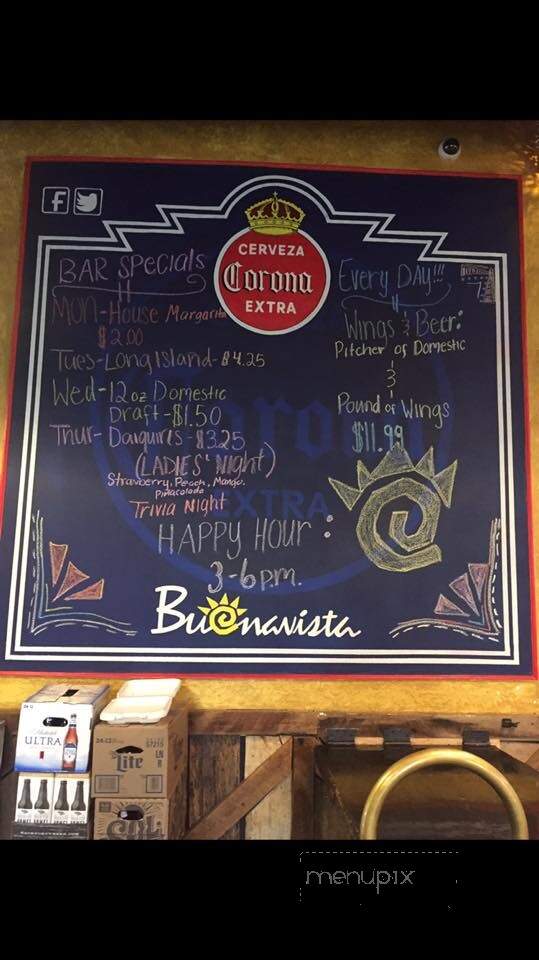 CERVEZA
Corona
EXTRA
BAR SPecials
Mon-House Margarita
$2.00
Tues-Long Island-$4.25
Wed-12oz Domestic
Draft-$1.50
Thur-Daiquiris-$3.25
(LADIES' Night)
Strawberry, Peach, Mango,
Pinacolada
Trivia Night
HAPPY HOUR:
3-6 p.m.
Every DAy!!!
Wings & Beer:
Pitcher of Domestic
&
Pound of Wings
$11.99
Corona
EXTRA
Buenavista
ULTRA
Lite
menupix